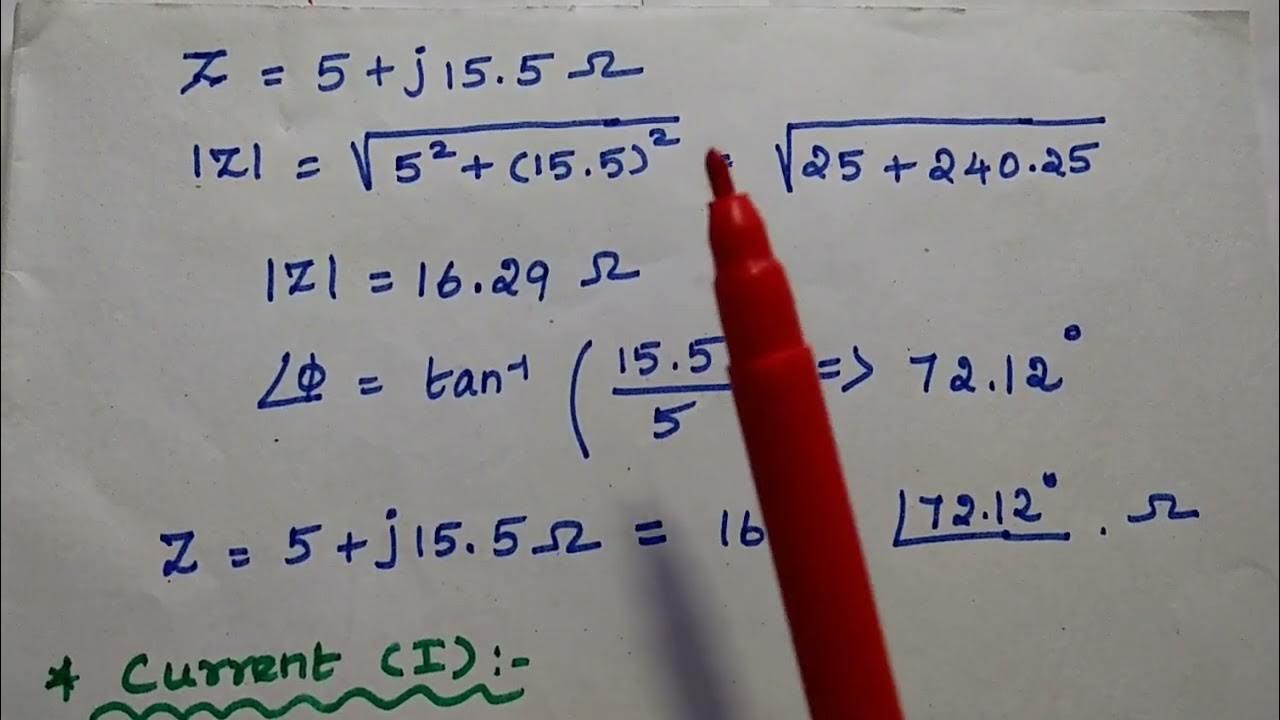 Z = 5 + j 15.5 Ω
|Z| = √5² + (15.5)² = √25 + 240.25
|Z| = 16.29 Ω
∠Φ = tan⁻¹ ( 15.5 / 5 => 72.12°
Z = 5 + j 15.5 Ω = 16 ∠72.12° . Ω
* Current (I):-